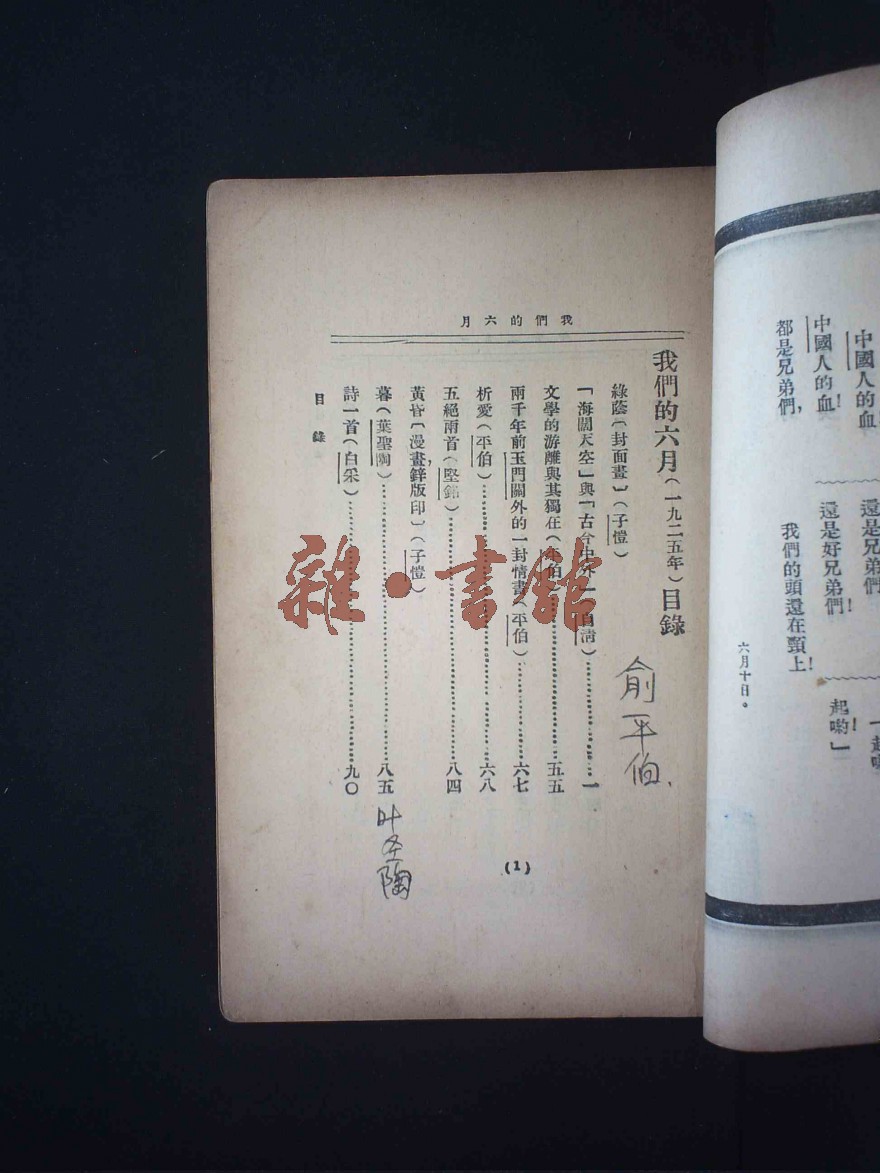 我們的六月
我們的六月(一九二五年)目錄
綠蔭〔封面畫〕(子愷)
「海闊天空」與「古今中外」(自清)⋯⋯一
文學的游離與其獨在(平伯)⋯⋯五五
兩千年前玉門關外的一封情書(平伯)⋯⋯六七
析愛(平伯)⋯⋯六八
五絕兩首(堅鉥)⋯⋯八四
黃昏〔漫畫,鋅版印〕(子愷)
暮(葉聖陶)⋯⋯八五
詩一首(白采)⋯⋯九〇
目錄
(1)
俞平伯、
叶圣陶
雜·書館
中國人的血
中國人的血!
都是兄弟們,
還是兄弟們
還是好兄弟們!
我們的頭還在頸上!
起喲!」
六月十日。